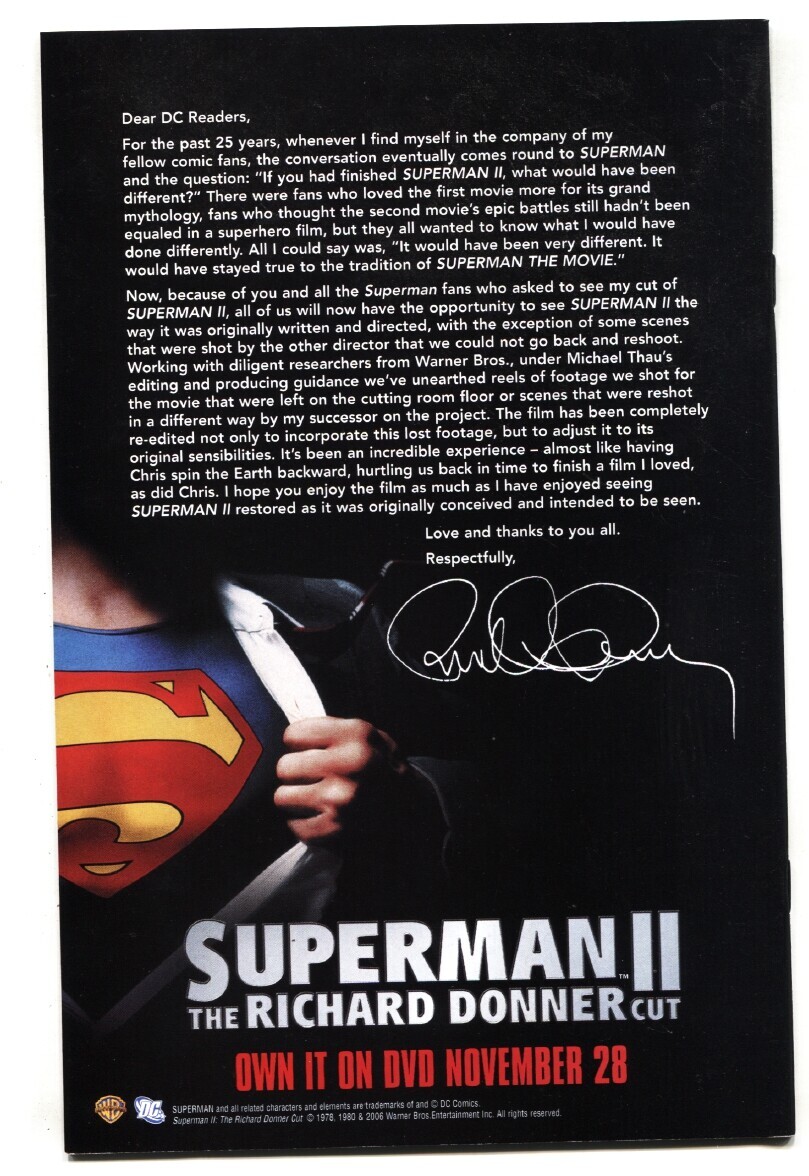 Dear DC Readers,
For the past 25 years, whenever I find myself in the company of my
fellow comic fans, the conversation eventually comes round to SUPERMAN
and the question: "If you had finished SUPERMAN II, what would have been
different?" There were fans who loved the first movie more for its grand
mythology, fans who thought the second movie's epic battles still hadn't been
equaled in a superhero film, but they all wanted to know what I would have
done differently. All I could say was, "It would have been very different. It
would have stayed true to the tradition of SUPERMAN THE MOVIE."
Now, because of you and all the Superman fans who asked to see my cut of
SUPERMAN II, all of us will now have the opportunity to see SUPERMAN II the
way it was originally written and directed, with the exception of some scenes
that were shot by the other director that we could not go back and reshoot.
Working with diligent researchers from Warner Bros., under Michael Thau's
editing and producing guidance we've unearthed reels of footage we shot for
the movie that were left on the cutting room floor or scenes that were reshot
in a different way by my successor on the project. The film has been completely
re-edited not only to incorporate this lost footage, but to adjust it to its
original sensibilities. It's been an incredible experience – almost like having
Chris spin the Earth backward, hurtling us back in time to finish a film I loved,
as did Chris. I hope you enjoy the film as much as I have enjoyed seeing
SUPERMAN II restored as it was originally conceived and intended to be seen.
Love and thanks to you all.
Respectfully,
S
SUPERMAN II™
THE RICHARD DONNER CUT
OWN IT ON DVD NOVEMBER 28
WB
DC
SUPERMAN and all related characters and elements are trademarks of and © DC Comics.
Superman II: The Richard Donner Cut © 1978, 1980 & 2006 Warner Bros.Entertainment Inc. All rights reserved.